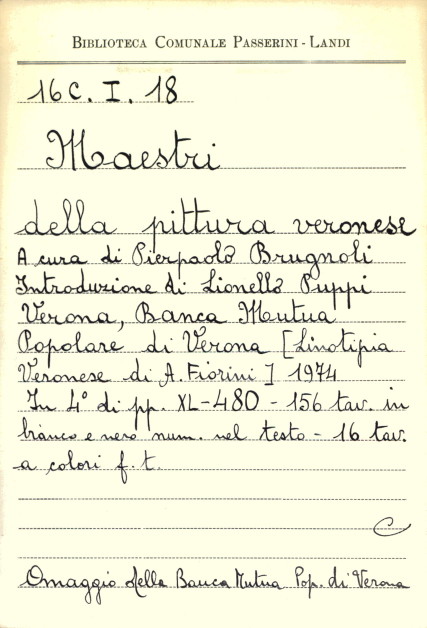 BIBLIOTECA COMUNALE PASSERINI - LANDI
16 C. I. 18
Maestri
della pittura veronese
A cura di Pierpaolo Brugnoli
Introduzione di Lionello Puppi
Verona, Banca Mutua
Popolare di Verona [Linotipia
Veronese di A. Fiorini] 1974
In 4° di pp. XL-480 - 156 tav. in
bianco e nero num. nel testo - 16 tav.
a colori f. t.
C
Omaggio della Banca Mutua Pop. di Verona